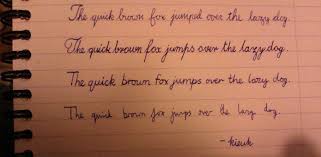 The quick brown fox jumped over the lazy dog.
The quick brown fox jumps over the lazy dog.
The quick brown fox jumps over the lazy dog.
The quick brown fox jumps over the lazy dog.